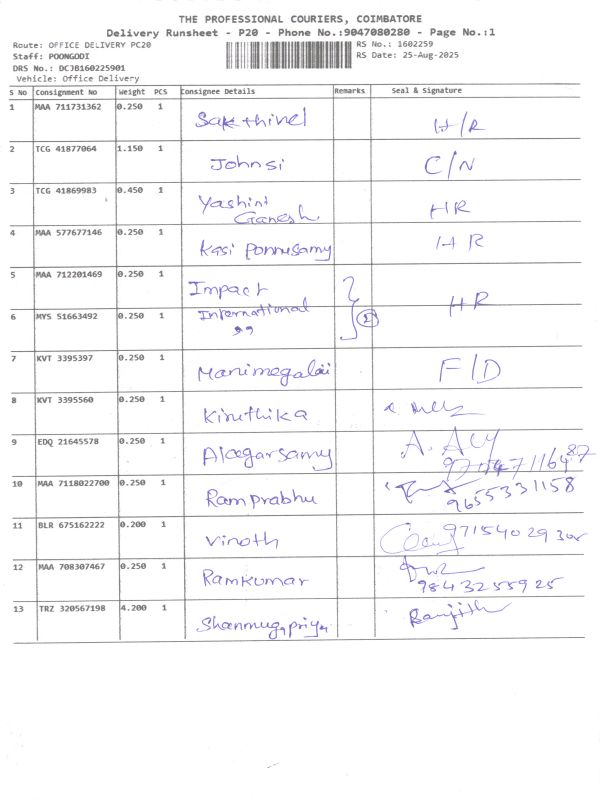 THE PROFESSIONAL COURIERS, COIMBATORE
Delivery Runsheet - P20 - Phone No.:9047080280 - Page No.:1
Route: OFFICE DELIVERY PC20 RS No.: 1602259
Staff: POONGODI RS Date: 25-Aug-2025
DRS No.: DCJB160225901
Vehicle: Office Delivery
S No Consignment No Weight PCS Consignee Details Remarks Seal & Signature
1 MAA 711731362 0.250 1 Sakthivel H/R
2 TCG 41877064 1.150 1 Johnsi C/N
3 TCG 41869983 0.450 1 Yashini Ganesh HR
4 MAA 577677146 0.250 1 Kasi Ponnusamy HR
5 MAA 712201469 0.250 1 Impact International HR
6 MYS 51663492 0.250 1 ,, 2
7 KVT 3395397 0.250 1 Manimegalai F/D
8 KVT 3395560 0.250 1 Kiruthika
9 EDQ 21645578 0.250 1 Alagarsamy
10 MAA 7118022700 0.250 1 Ramprabhu 9655331158
11 BLR 675162222 0.200 1 Vinoth
12 MAA 708307467 0.250 1 Ramkumar 9843255925
13 TRZ 320567198 4.200 1 Shanmugapriya Ranjith